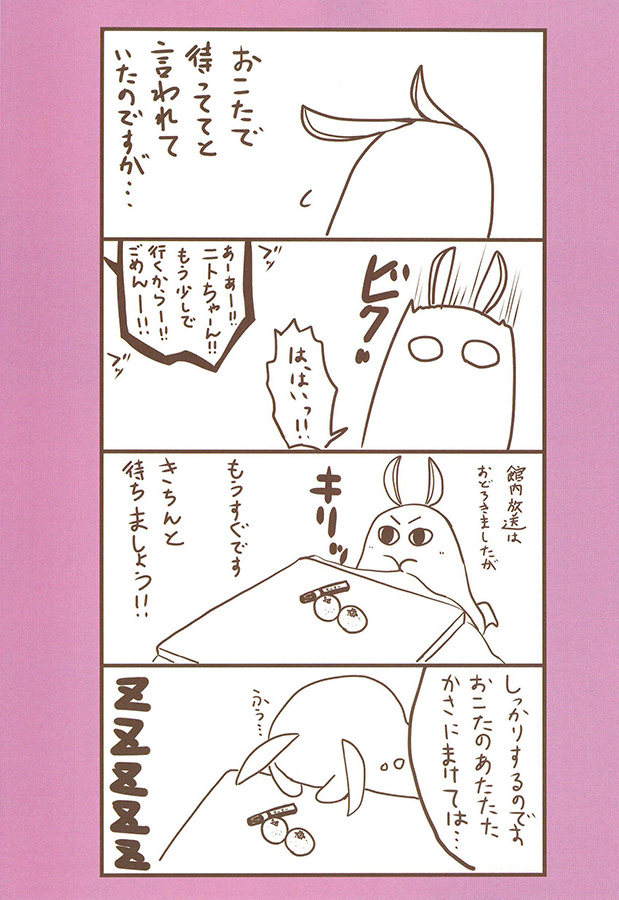 おこたで
待っててと
言われて
いたのですが…
ビクッ
ブッ
あーあー!!
ニトちゃーん!!
もう少しで
行くからー!!
ごめんー!!
ブッ
は、はいっ!!
館内放送は
おどろきましたが
キリッ
もうすぐです
きちんと
待ちましょう!!
しっかりするのです
おこたのあたたた
かさにまけては…
ふぅ…
ZZZZZ